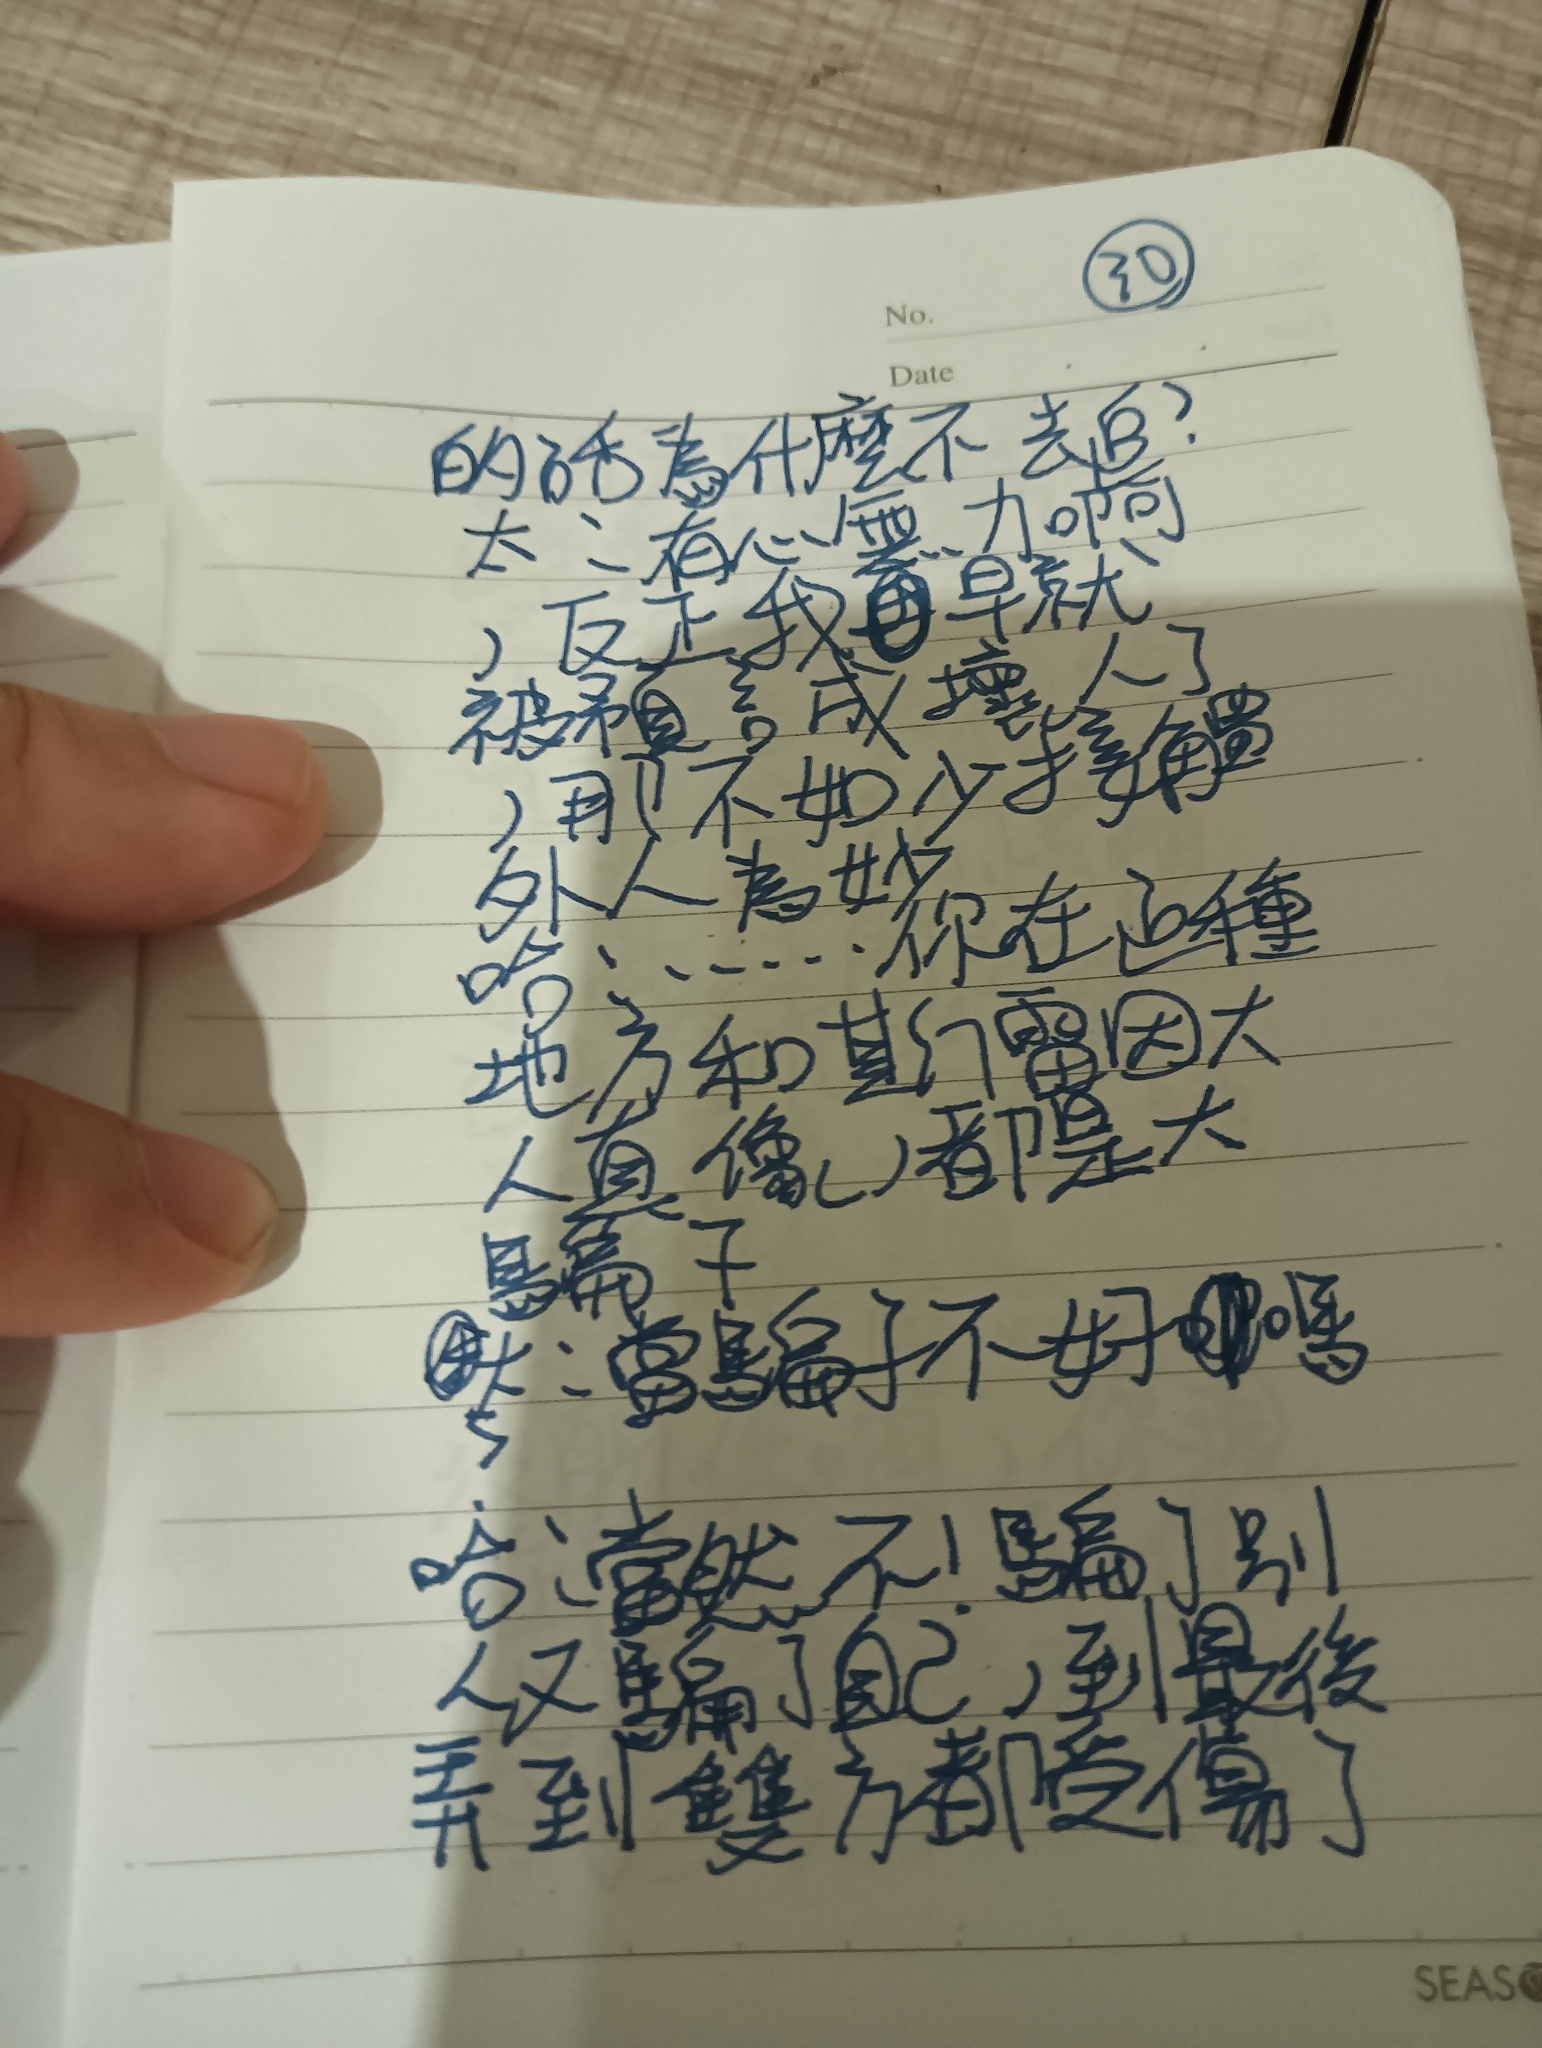 30
No.
Date
的話為什麼不去追?
太:有心無力啊
,反正我早就
被預言成壞人了
,那不如少接觸
外人為妙
哈:……你在這種
地方和斯雷因大
人真像,都是大
騙子
太:當騙子不好嗎
?
哈:當然不!騙了別
人又騙了自己,到最後
弄到雙方都受傷了
SEASO